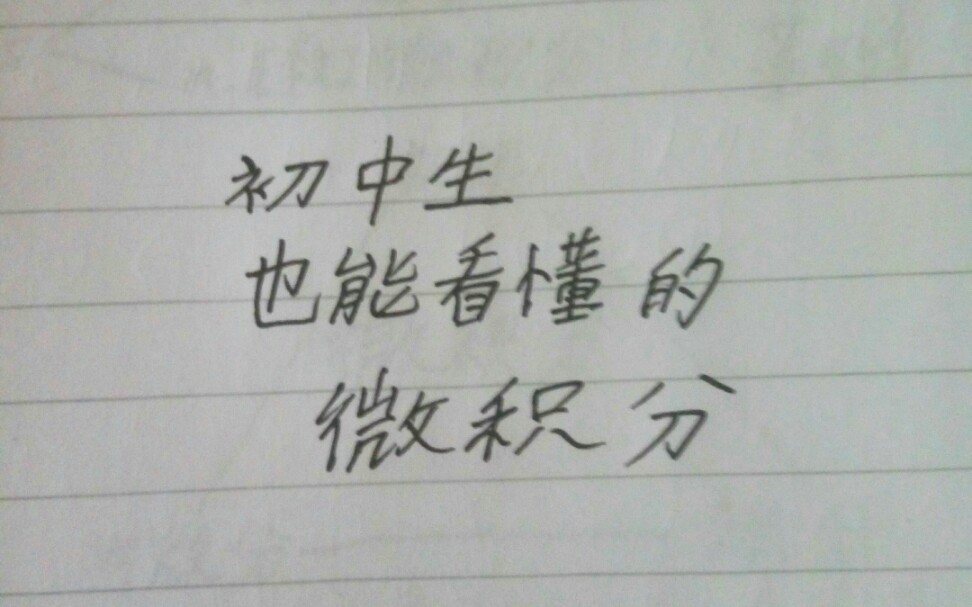 初中生
也能看懂的
微积分